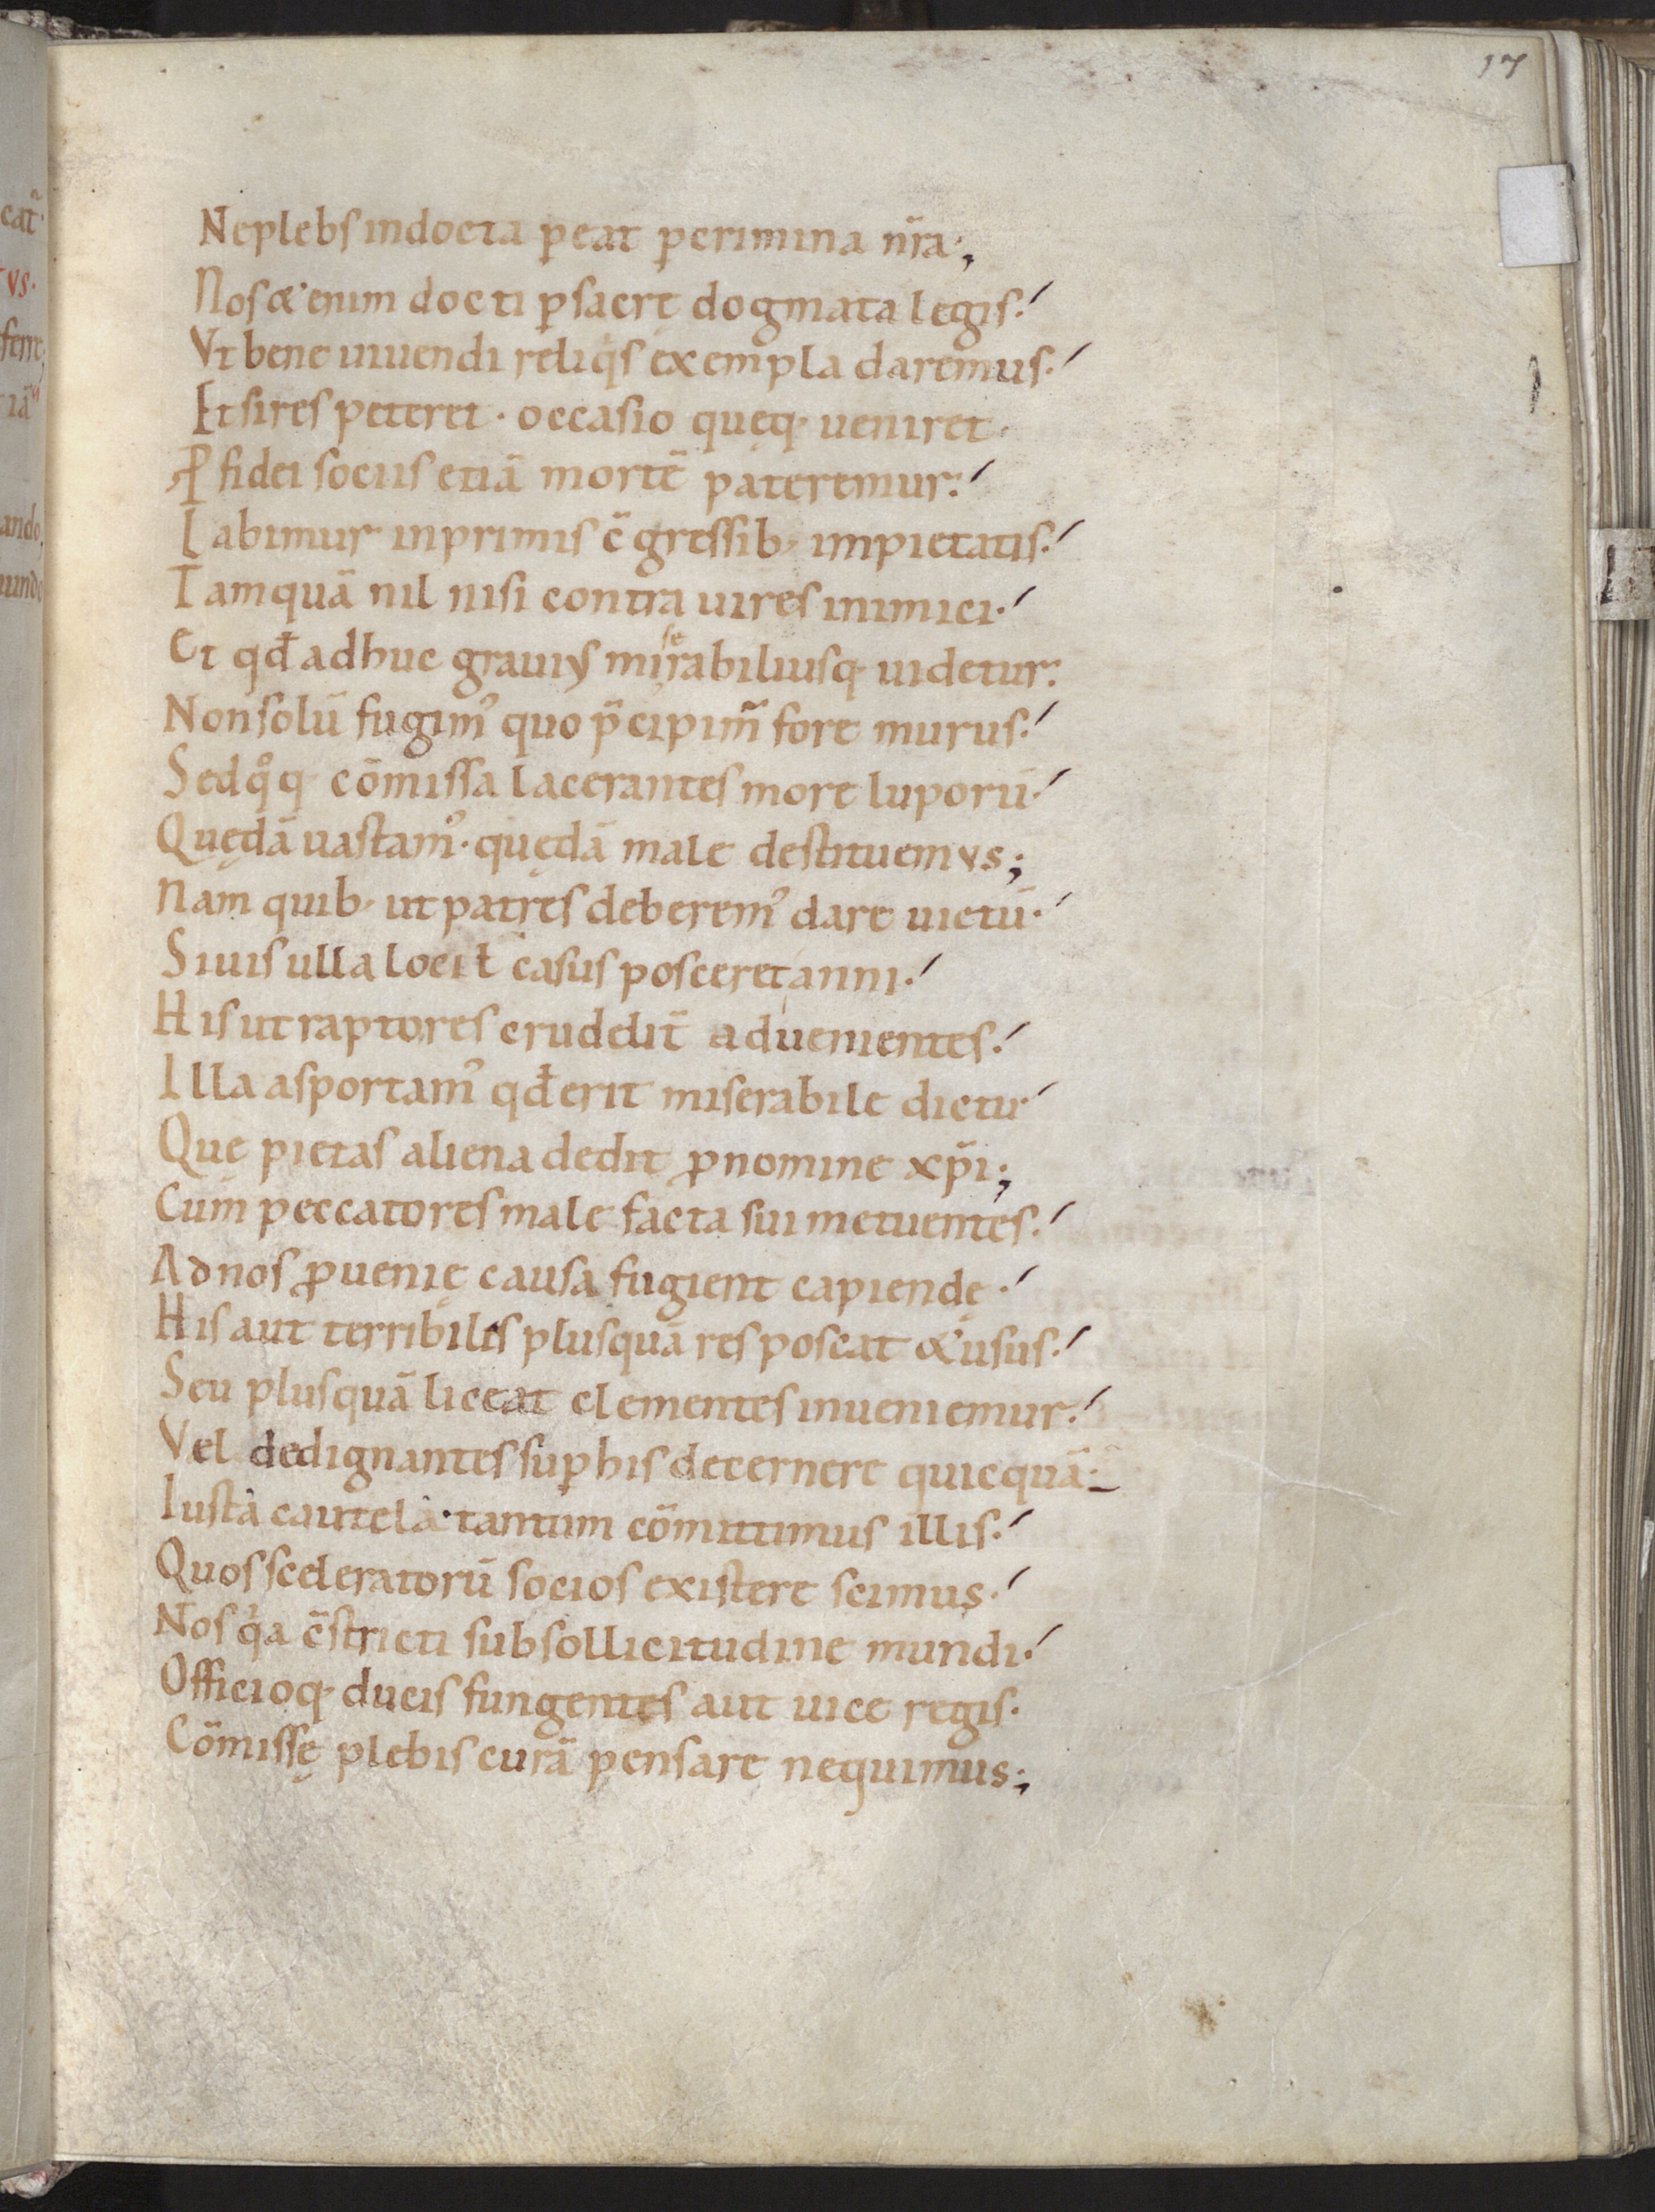 17
Ne plebs indocta ꝑeat ꝑ crimina nr̃a;
Nos & enim docti ꝑ sacrę dogmata legis.
Vt bene uiuendi reliqͥs exempla daremus.
Et si res peteret · occasio quęq· ueniret.
P̱ fidei sociis etiā mortē pateremur:
Labimur inprimis c̄ gressib; impietatis.
Tamquā nil nisi contra uires inimici.
se
Et qđ adhuc grauiꝰ mirabiliusq· uidetur:
Non solū fugimꝰ quo p̄cipimr̃ fore murus.
Sed q°q· cōmissa lacerantes more luporū.
Quędā uastamꝰ · quędā male destituemus;
Nam quib; ut patres deberemꝰ dare uictū.
Si uis ulla loci ł casus posceret anni.
His ut raptores crudelit̃ aduenientes.
Illa asportamꝰ qđ erit miserabile dictu
Que pietas aliena dedit ꝓ nomine xp̄i;
Cum peccatores male facta sui metuentes.
Ad nos ꝓ uenię causa fugient capiendę.
His aut terribiles plusquā res poscat & usus.
Seu plusquā liceat clementes inueniemur.
Vel dedignantes suꝑ his decernere quicquā.
Iusta cautela · tantum cōmittimus illis.
Quos sceleratorū socios existere scimus.
Nos qͥa c̄stricti sub sollicitudine mundi.
Officioq· ducis fungentes aut uice regis.
Cōmissę plebis curā pensare nequimus;